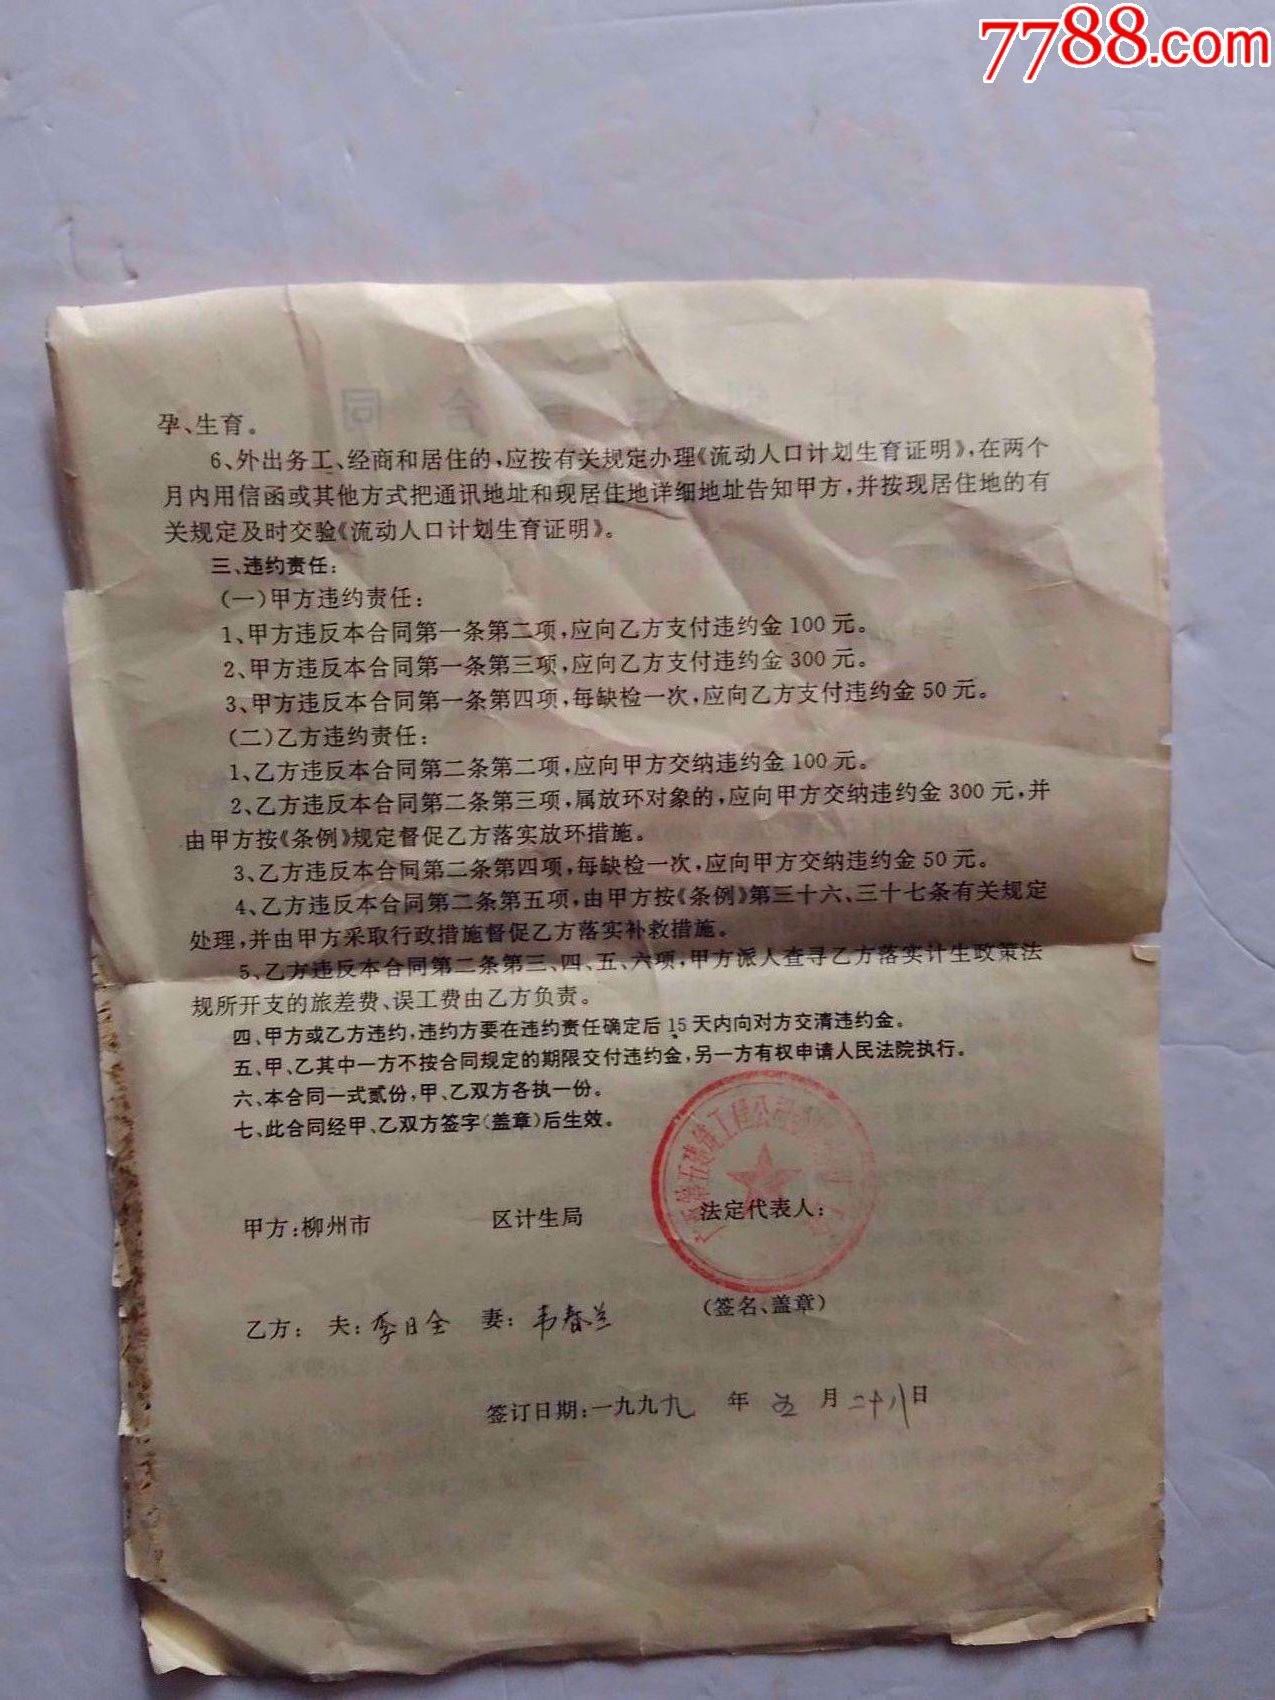 7788.com
孕、生育。
6、外出务工、经商和居住的,应按有关规定办理《流动人口计划生育证明》,在两个
月内用信函或其他方式把通讯地址和现居住地详细地址告知甲方,并按现居住地的有
关规定及时交验《流动人口计划生育证明》。
三、违约责任:
(一)甲方违约责任:
1、甲方违反本合同第一条第二项,应向乙方支付违约金100元。
2、甲方违反本合同第一条第三项,应向乙方支付违约金300元。
3、甲方违反本合同第一条第四项,每缺检一次,应向乙方支付违约金50元。
(二)乙方违约责任:
1、乙方违反本合同第二条第二项,应向甲方交纳违约金100元。
2、乙方违反本合同第二条第三项,属放环对象的,应向甲方交纳违约金300元,并
由甲方按《条例》规定督促乙方落实放环措施。
3、乙方违反本合同第二条第四项,每缺检一次,应向甲方交纳违约金50元。
4、乙方违反本合同第二条第五项,由甲方按《条例》第三十六、三十七条有关规定
处理,并由甲方采取行政措施督促乙方落实补救措施。
5、乙方违反本合同第二条第三、四、五、六项,甲方派人查寻乙方落实计生政策法
规所开支的旅差费、误工费由乙方负责。
四、甲方或乙方违约,违约方要在违约责任确定后15天内向对方交清违约金。
五、甲、乙其中一方不按合同规定的期限交付违约金,另一方有权申请人民法院执行。
六、本合同一式贰份,甲、乙双方各执一份。
七、此合同经甲、乙双方签字(盖章)后生效。
第五建筑工程公司
甲方:柳州市 区计生局 法定代表人:
(签名、盖章)
乙方: 夫:李日全 妻:韦春兰
签订日期:一九九九年五月二十八日